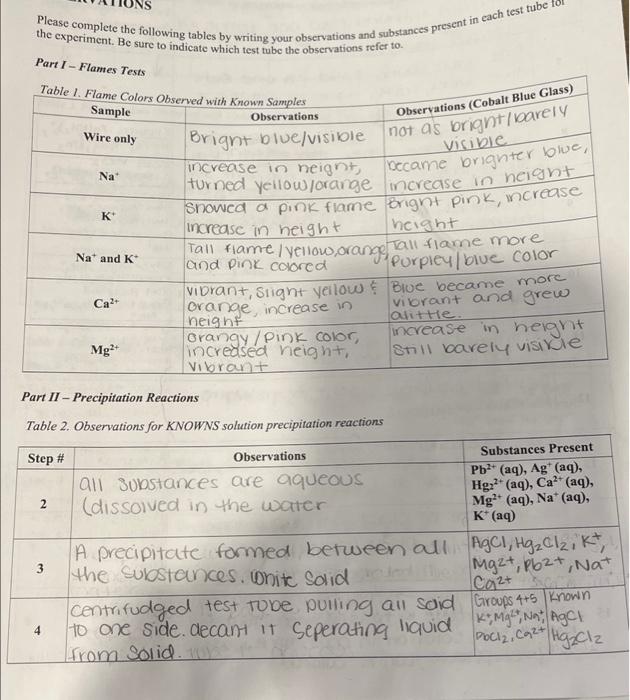 Please complete the following tables by writing your observations and substances present in each test tube for
the experiment. Be sure to indicate which test tube the observations refer to.
Part I – Flames Tests
Table 1. Flame Colors Observed with Known Samples
Sample
Observations
Observations (Cobalt Blue Glass)
Wire only
Bright blue/visible
not as bright/barely
visible
Na⁺
increase in height,
turned yellow/orange
became brighter blue,
increase in height
K⁺
Showed a pink flame
increase in height
Bright pink, increase
height
Na⁺ and K⁺
Tall flame/yellow,orange,
and pink colored
Tall flame more
purpley/blue color
Ca²⁺
vibrant, slight yellow &
orange, increase in
height
Blue became more
vibrant and grew
alittle.
Mg²⁺
orangy/pink color,
increased height,
vibrant
increase in height
still barely visible
Part II – Precipitation Reactions
Table 2. Observations for KNOWNS solution precipitation reactions
Step #
Observations
Substances Present
2
all substances are aqueous
(dissolved in the water
Pb²⁺ (aq), Ag⁺ (aq),
Hg₂²⁺ (aq), Ca²⁺ (aq),
Mg²⁺ (aq), Na⁺ (aq),
K⁺ (aq)
3
A precipitate formed between all
the substances. White Solid
AgCl, Hg₂Cl₂, K⁺,
Mg2+, Pb2+, Na⁺
Ca2+
4
centrifudged test tube pulling all solid
to one side. decant it seperating liquid
from solid.
Groups 4+5
K⁺, Mg²⁺, Na⁺,
PbCl₂, Ca²⁺
Known
AgCl
Hg₂Cl₂